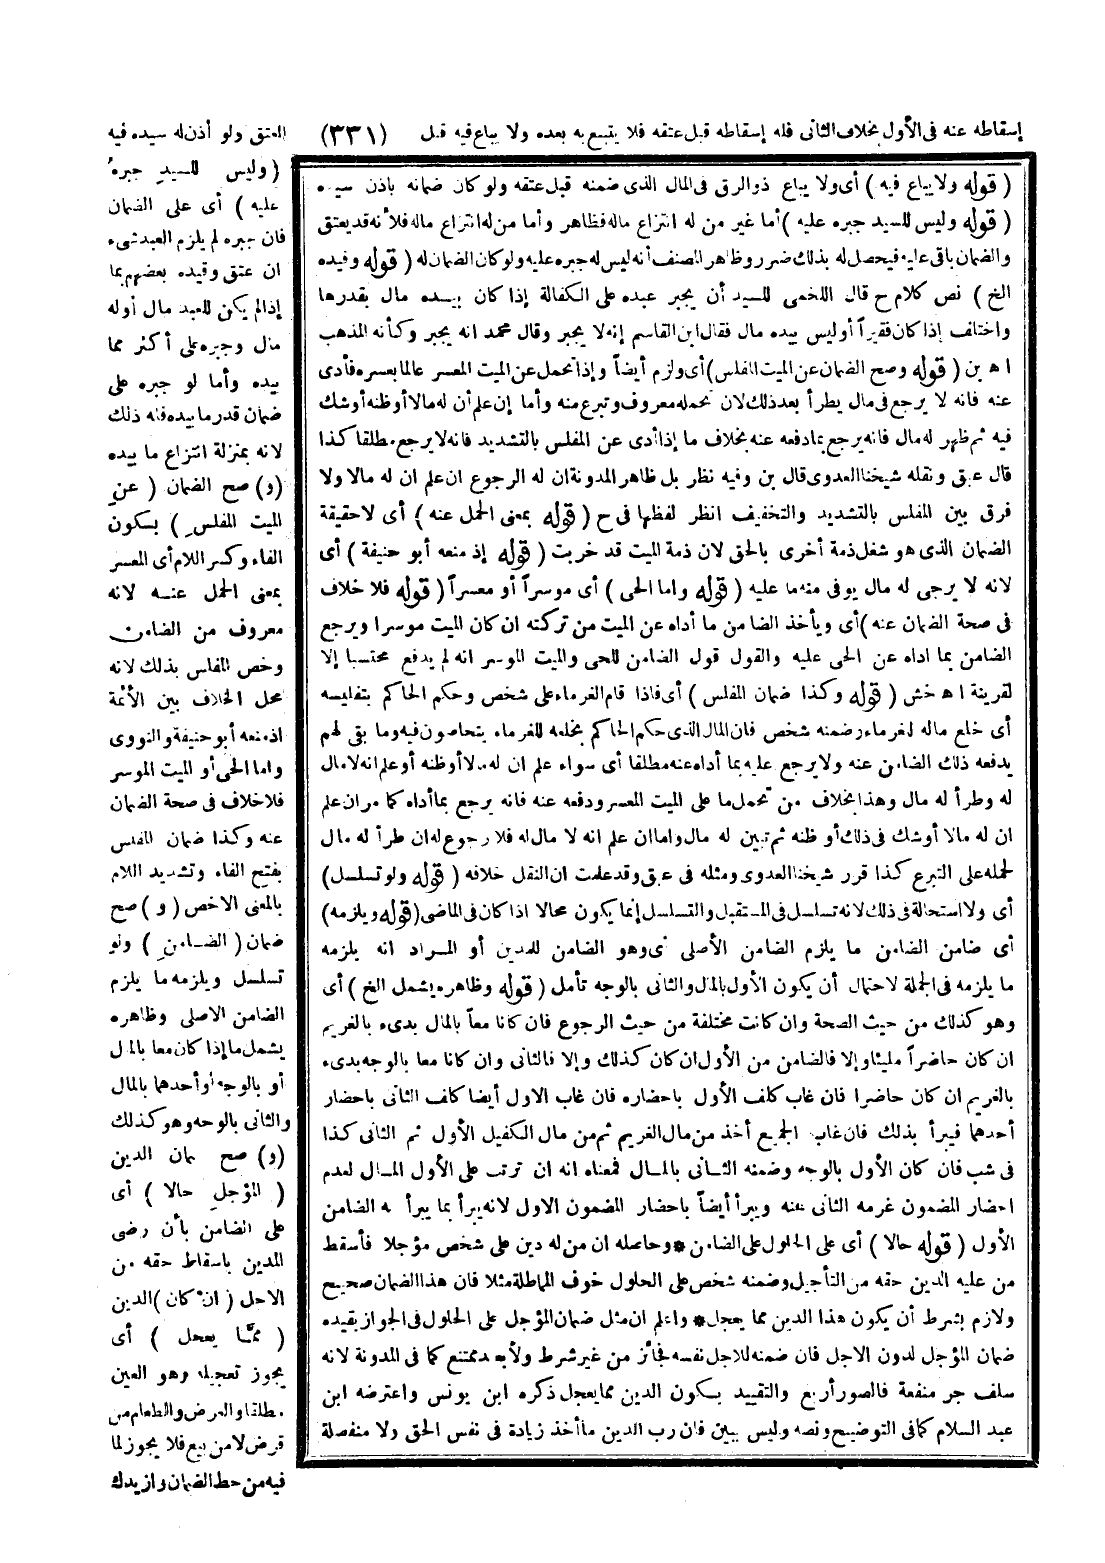 إسقاطه عنه فى الأول بخلاف الثانى فله إسقاطه قبل عتقه فلا يتبع به بعده ولا يباع فيه قبل
(٣٣١)
العتق ولو أذن له سيده فيه
(وليس للسيد جبره
عليه) أى على الضمان
فان جبره لم يلزم العبد شىء
ان عتق وقيده بعضهم بما
إذا لم يكن للعبد مال أو له
مال وجبره على أكثر مما
بيده وأما لو جبره على
ضمان قدر ما بيده فله ذلك
لانه بمنزلة انتزاع ما بيده
(و) صح الضمان (عن
الميت المفلس) بسكون
الفاء وكسر اللام أى المعسر
بمعنى الحمل عنه لانه
معروف من الضامن
وخص المفلس بذلك لانه
محل الخلاف بين الأئمة
اذ منعه أبو حنيفة والثورى
واما الحى أو الميت الموسر
فلا خلاف فى صحة الضمان
عنه وكذا ضمان المفلس
بفتح الفاء وتشديد اللام
بالمعنى الاخص (و) صح
ضمان (الضامن) ولو
تسلسل ويلزمه ما يلزم
الضامن الاصلى وظاهره
يشمل ما إذا كان معا بالمال
أو بالوجه أو أحدهما بالمال
والثانى بالوجه وهو كذلك
(و) صح ضمان الدين
(المؤجل حالا) أى
على الضامن بأن رضى
المدين باسقاط حقه من
الاجل (ان كان) الدين
(مما يعجل) أى
يجوز تعجيله وهو العين
مطلقا والعرض والطعام من
قرض لا من بيع فلا يجوز لما
فيه من حط الضمان وازيدك
(قوله ولا يباع فيه) أى ولا يباع ذو الرق فى المال الذى ضمنه قبل عتقه ولو كان ضمانه باذن سيده
(قوله وليس للسيد جبره عليه) أما غير من له انتزاع ماله فظاهر وأما من له انتزاع ماله فلأنه قد يعتق
والضمان باقى عليه فيحصل له بذلك ضرر وظاهر المصنف أنه ليس له جبره عليه ولو كان الضمان له (قوله وقيده
الخ) نص كلام ح قال اللخمى للسيد أن يجبر عبده على الكفالة إذا كان بيده مال بقدرها
واختلف إذا كان فقيراً أو ليس بيده مال فقال ابن القاسم إنه لا يجبر وقال محمد انه يجبر وكأنه المذهب
اهـ بن (قوله وصح الضمان عن الميت المفلس) أى ولزم أيضاً وإذا تحمل عن الميت المعسر عالما بعسره فأدى
عنه فانه لا يرجع فى مال يطرأ بعد ذلك لان تحمله معروف وتبرع منه وأما إن علم أن له مالا أو ظنه أو شك
فيه ثم ظهر له مال فانه يرجع بما دفعه عنه بخلاف ما إذا أدى عن المفلس بالتشديد فانه لا يرجع مطلقا كذا
قال عبق ونقله شيخنا العدوى قال بن وفيه نظر بل ظاهر المدونة ان له الرجوع ان علم ان له مالا ولا
فرق بين المفلس بالتشديد والتخفيف انظر لفظها فى ح (قوله بمعنى الحمل عنه) أى لا حقيقة
الضمان الذى هو شغل ذمة أخرى بالحق لان ذمة الميت قد خربت (قوله إذ منعه أبو حنيفة) أى
لانه لا يرجى له مال يوفى منه ما عليه (قوله واما الحى) أى موسراً أو معسراً (قوله فلا خلاف
فى صحة الضمان عنه) أى ويأخذ الضامن ما أداه عن الميت من تركته ان كان الميت موسرا ويرجع
الضامن بما اداه عن الحى عليه والقول قول الضامن للحى والميت الموسر انه لم يدفع محتسبا إلا
لقرينة اهـ خش (قوله وكذا ضمان المفلس) أى فاذا قام الغرماء على شخص وحكم الحاكم بتفليسه
أى خلع ماله لغرماء وضمنه شخص فان المال الذى حكم الحاكم بخلعه للغرماء يتحاصون فيه وما بقى لهم
يدفعه ذلك الضامن عنه ولا يرجع عليه بما أداه عنه مطلقا أى سواء علم ان له مالا أو ظنه أو علم انه لا مال
له وطرأ له مال وهذا بخلاف من تحمل ما على الميت المعسر ودفعه عنه فانه يرجع بما أداه كما مر ان علم
ان له مالا أو شك فى ذلك أو ظنه ثم تبين له مال واما ان علم انه لا مال له فلا رجوع له ان طرأ له مال
لحمله على التبرع كذا قرر شيخنا العدوى ومثله فى عبق وقد علمت ان النقل خلافه (قوله ولو تسلسل)
أى ولا استحالة فى ذلك لانه تسلسل فى المستقبل والتسلسل إنما يكون محالا اذا كان فى الماضى (قوله ويلزمه)
أى ضامن الضامن ما يلزم الضامن الأصلى أى وهو الضامن للمدين أو المراد انه يلزمه
ما يلزمه فى الجملة لاحتمال أن يكون الأول بالمال والثانى بالوجه تأمل (قوله وظاهره يشمل الخ) أى
وهو كذلك من حيث الصحة وان كانت مختلفة من حيث الرجوع فان كانا معاً بالمال بدىء بالغريم
ان كان حاضراً مليئا وإلا فالضامن من الأول ان كان كذلك وإلا فالثانى وان كانا معا بالوجه بدىء
بالغريم ان كان حاضرا فان غاب كلف الأول باحضاره فان غاب الاول أيضا كلف الثانى باحضار
أحدهما فيبرأ بذلك فان غاب الجميع أخذ من مال الغريم ثم من مال الكفيل الأول ثم الثانى كذا
فى شب فان كان الأول بالوجه وضمنه الثانى بالمال فمعناه انه ان ترتب على الأول المال لعدم
احضار المضمون غرمه الثانى عنه ويبرأ أيضاً باحضار المضمون الاول لانه يبرأ بما يبرأ به الضامن
الأول (قوله حالا) أى على الحلول على الضامن * وحاصله ان من له دين على شخص مؤجلا فأسقط
من عليه الدين حقه من التأجيل وضمنه شخص على الحلول خوف المماطلة مثلا فان هذا الضمان صحيح
ولازم بشرط أن يكون هذا الدين مما يعجل * واعلم ان مثل ضمان المؤجل على الحلول فى الجواز بقيده
ضمان المؤجل لدون الاجل فان ضمنه للاجل نفسه فجائز من غير شرط ولأبعد ممتنع كما فى المدونة لانه
سلف جر منفعة فالصور أربع والتقييد بكون الدين مما يعجل ذكره ابن يونس واعترضه ابن
عبد السلام كما فى التوضيح ونصه وليس ببين فان رب الدين ما أخذ زيادة فى نفس الحق ولا منفصلة